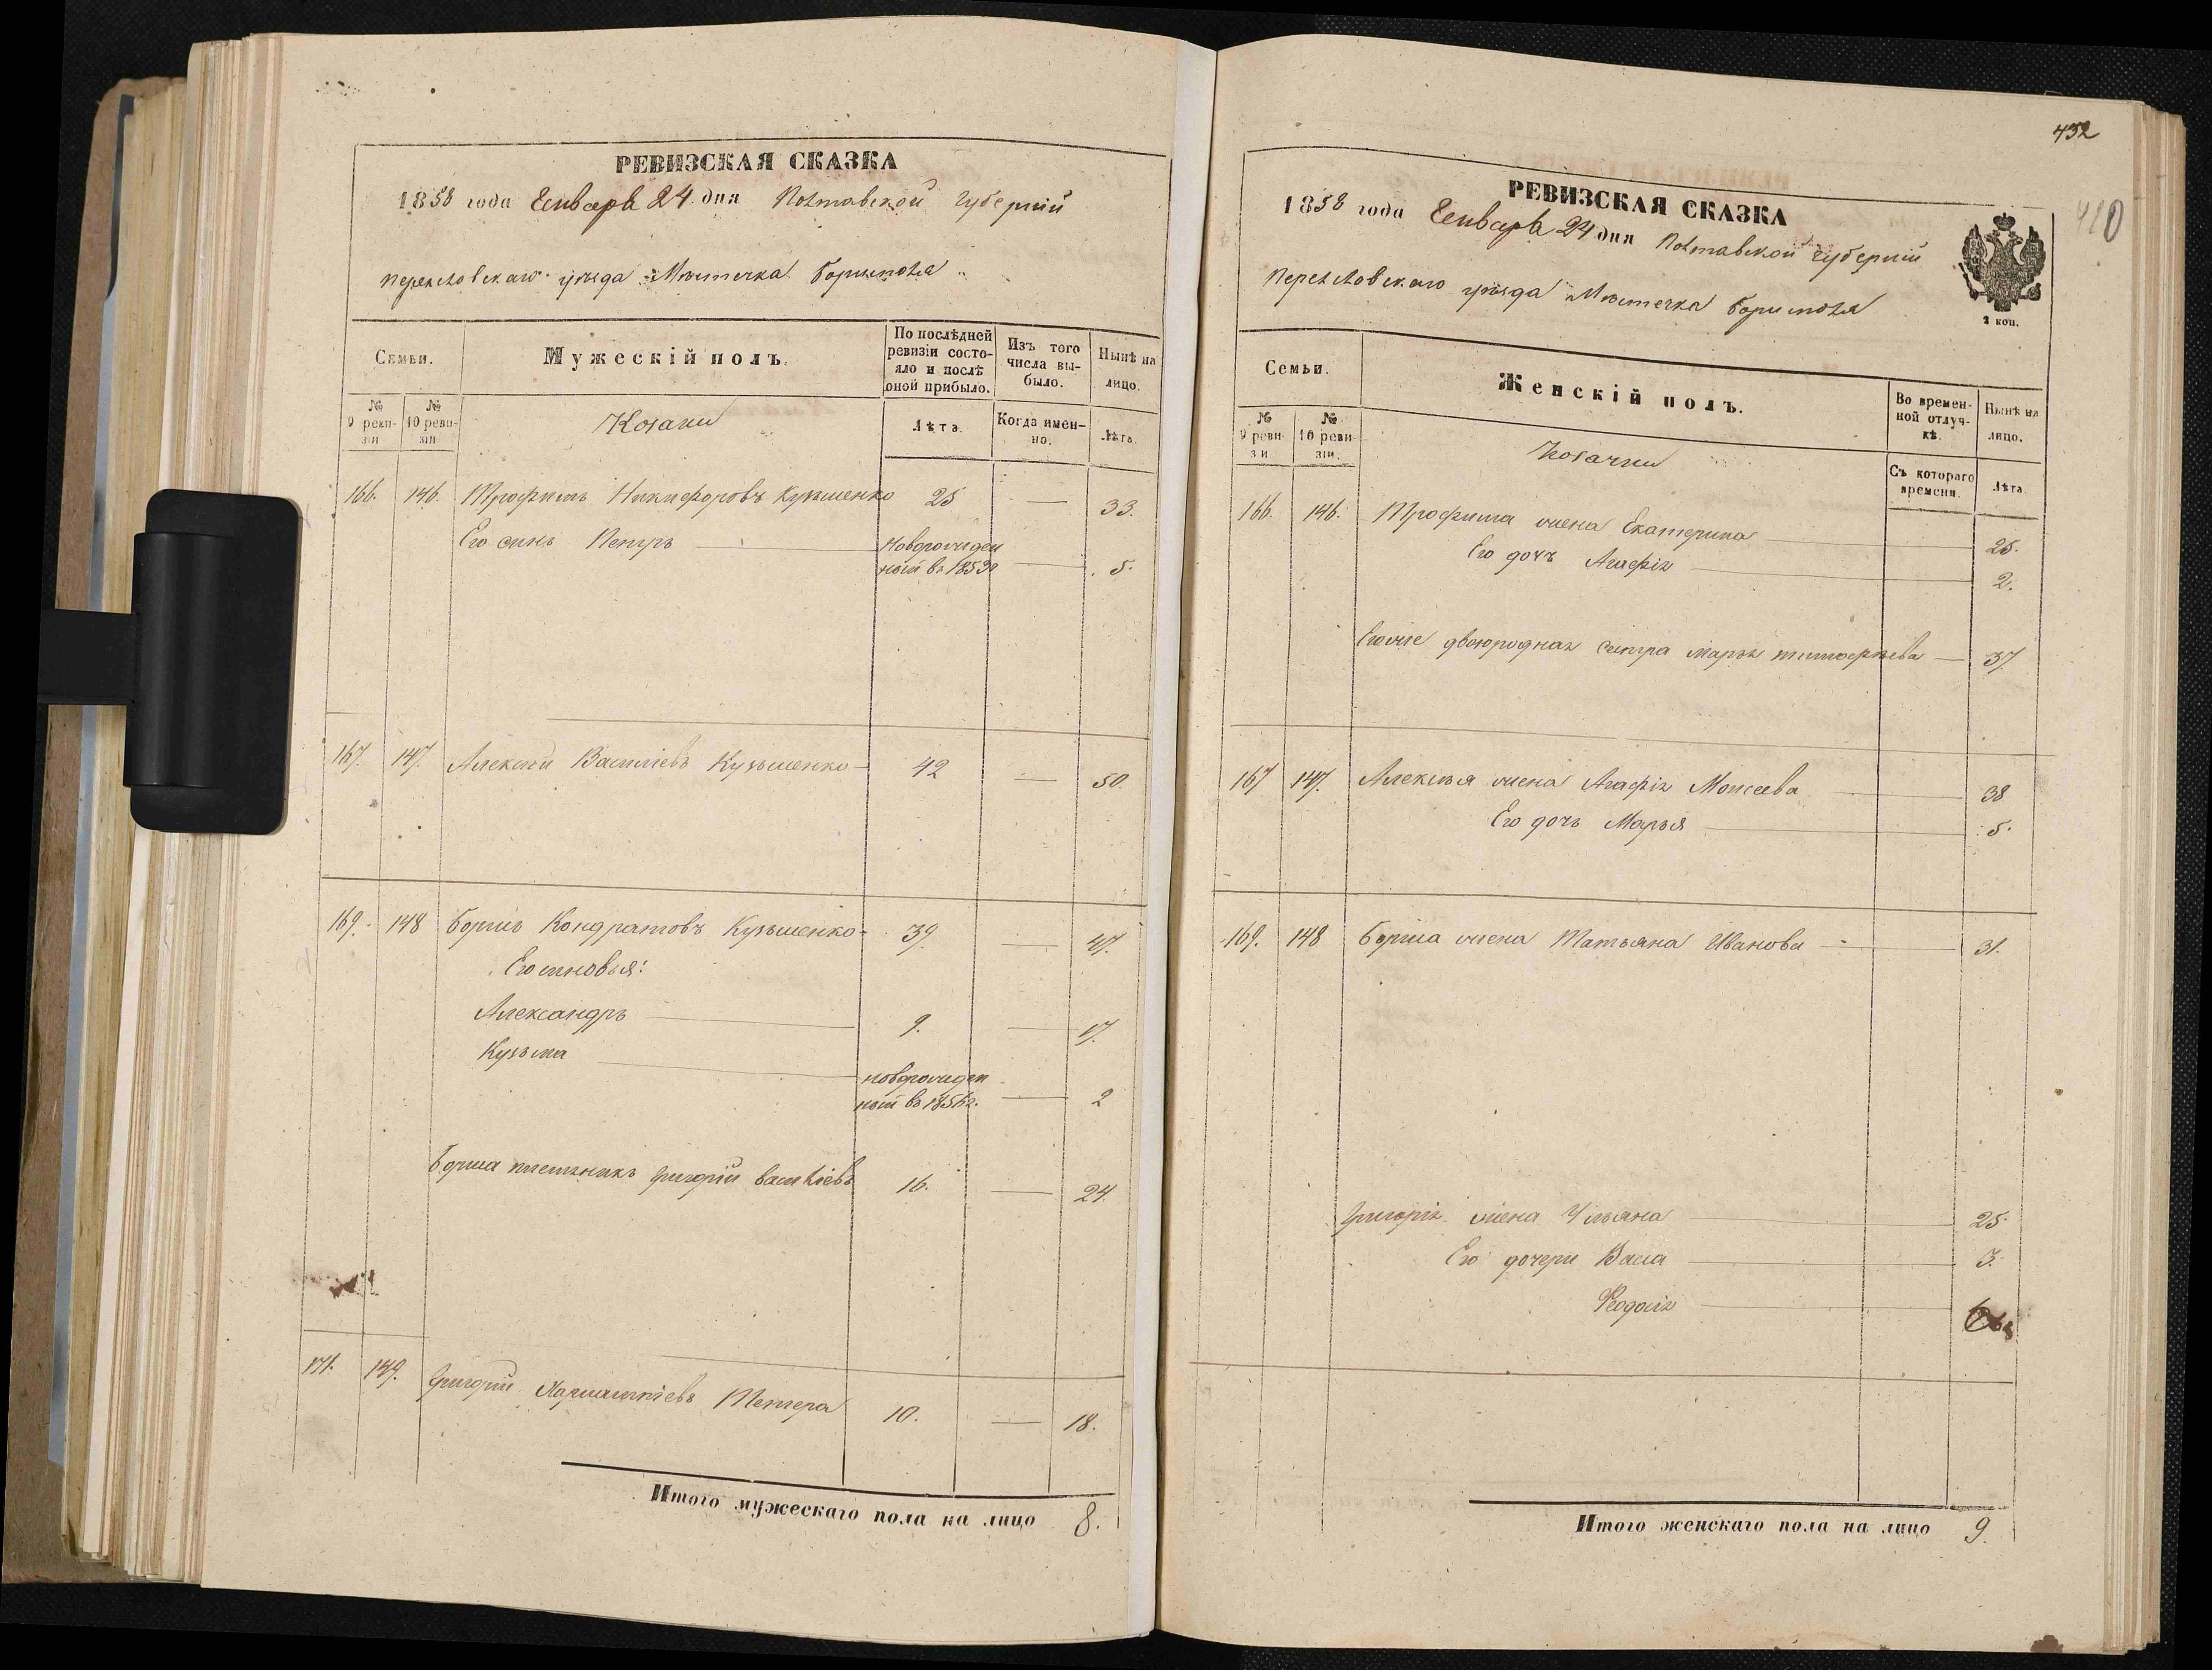 РЕВИЗСКАЯ СКАЗКА
1858 года Генваря 24 дня Полтавской губерніи
Переяловскаго уѣзда Мѣстечка Борисполя
Семьи.
Мужескій полъ.
По послѣдней ревизіи состояло и послѣ оной прибыло.
Изъ того числа выбыло.
Нынѣ на лицо.
№ 9 ревизіи
№ 10 ревизіи
Козаки
Лѣта.
Когда именно.
Лѣта.
166. 146. Трофимъ Никифоровъ Кузьменко 25 — 33.
Его сынъ Петръ — Новорожденный въ 1853г — 5.
167. 147. Алексѣй Василіевъ Кузьменко — 42 — 50.
169. 148 Борисъ Кондратовъ Кузьменко — 39 — 47.
Его сыновья:
Александръ — 9. — 17.
Кузьма — новорожденный въ 1856г. — 2
Бориса племяникъ Григорій Василіевъ 16. — 24.
171. 149. Григорій Тетера 10. — 18.
Итого мужескаго пола на лицо 8.
432
410
РЕВИЗСКАЯ СКАЗКА
1858 года Генваря 24 дня Полтавской губерніи
Переяловскаго уѣзда Мѣстечка Борисполя
2 коп.
Семьи.
Женскій полъ.
Во временной отлучкѣ.
Нынѣ на лицо.
№ 9 ревизіи
№ 10 ревизіи.
Козачки
Съ котораго времени.
Лѣта.
166. 146. Трофима жена Екатерина — 25.
Его дочь Агафія — 2.
Егоже двоюродная сестра Марья Тимофѣева — 37
167 147. Алексѣя жена Агафія Моисеева — 38
Его дочь Марья — 5.
169. 148 Бориса жена Татьяна Иванова — 31.
Григорія жена Ульяна — 25.
Его дочери Васса — 3.
Феодосія —
Итого женскаго пола на лицо 9.